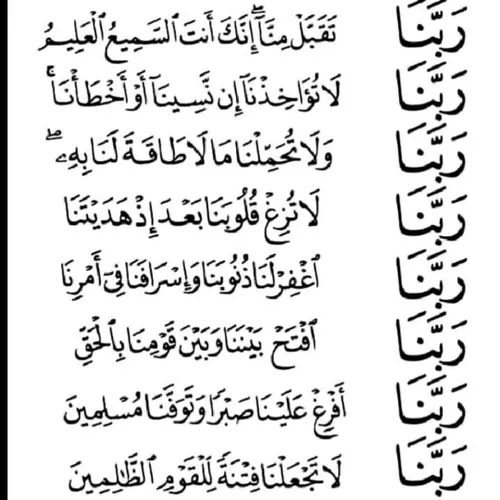 رَبَّنَا تَقَبَّلْ مِنَّآ ۖ إِنَّكَ أَنتَ ٱلسَّمِيعُ ٱلْعَلِيمُ
رَبَّنَا لَا تُؤَاخِذْنَآ إِن نَّسِينَآ أَوْ أَخْطَأْنَا ۚ
رَبَّنَا وَلَا تُحَمِّلْنَا مَا لَا طَاقَةَ لَنَا بِهِۦ ۖ
رَبَّنَا لَا تُزِغْ قُلُوبَنَا بَعْدَ إِذْ هَدَيْتَنَا
رَبَّنَا ٱغْفِرْ لَنَا ذُنُوبَنَا وَإِسْرَافَنَا فِىٓ أَمْرِنَا
رَبَّنَا ٱفْتَحْ بَيْنَنَا وَبَيْنَ قَوْمِنَا بِٱلْحَقِّ
رَبَّنَآ أَفْرِغْ عَلَيْنَا صَبْرًا وَتَوَفَّنَا مُسْلِمِينَ
رَبَّنَا لَا تَجْعَلْنَا فِتْنَةً لِّلْقَوْمِ ٱلظَّـٰلِمِينَ